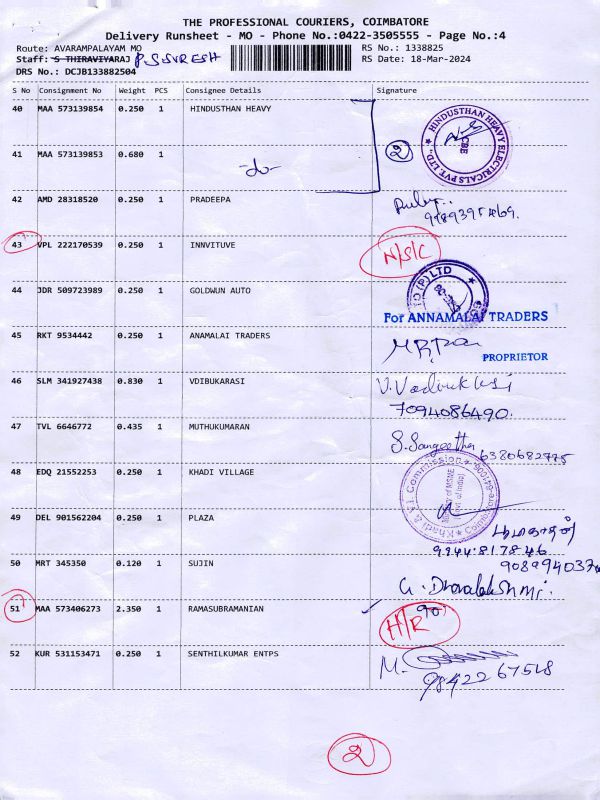 THE PROFESSIONAL COURIERS, COIMBATORE
Delivery Runsheet - MO - Phone No.:0422-3505555 - Page No.:4
Route: AVARAMPALAYAM MO RS No.: 1338825
Staff: S THIRAVIYARAJ P. SURESH RS Date: 18-Mar-2024
DRS No.: DCJB133882504
S No Consignment No Weight PCS Consignee Details Signature
40 MAA 573139854 0.250 1 HINDUSTHAN HEAVY
HINDUSTHAN HEAVY ELECTRICALS PVT. LTD. CBE
2
41 MAA 573139853 0.680 1 -do-
42 AMD 28318520 0.250 1 PRADEEPA
43 VPL 222170539 0.250 1 INNVITUVE N/S/C
44 JDR 509723989 0.250 1 GOLDWUN AUTO
(P) LTD
For ANNAMALAI TRADERS
45 RKT 9534442 0.250 1 ANAMALAI TRADERS
PROPRIETOR
46 SLM 341927438 0.830 1 VDIBUKARASI V. Vadivukkasi
7094086490.
47 TVL 6646772 0.435 1 MUTHUKUMARAN S. Sangeetha 6380682775
48 EDQ 21552253 0.250 1 KHADI VILLAGE
Khadi & V.I. Commission
Ministry of MSME
Govt. of India
49 DEL 901562204 0.250 1 PLAZA
9344817846
50 MRT 345350 0.120 1 SUJIN
G. Dhanalakshmi
51 MAA 573406273 2.350 1 RAMASUBRAMANIAN H/R
52 KUR 531153471 0.250 1 SENTHILKUMAR ENTPS M.
9842267518
2